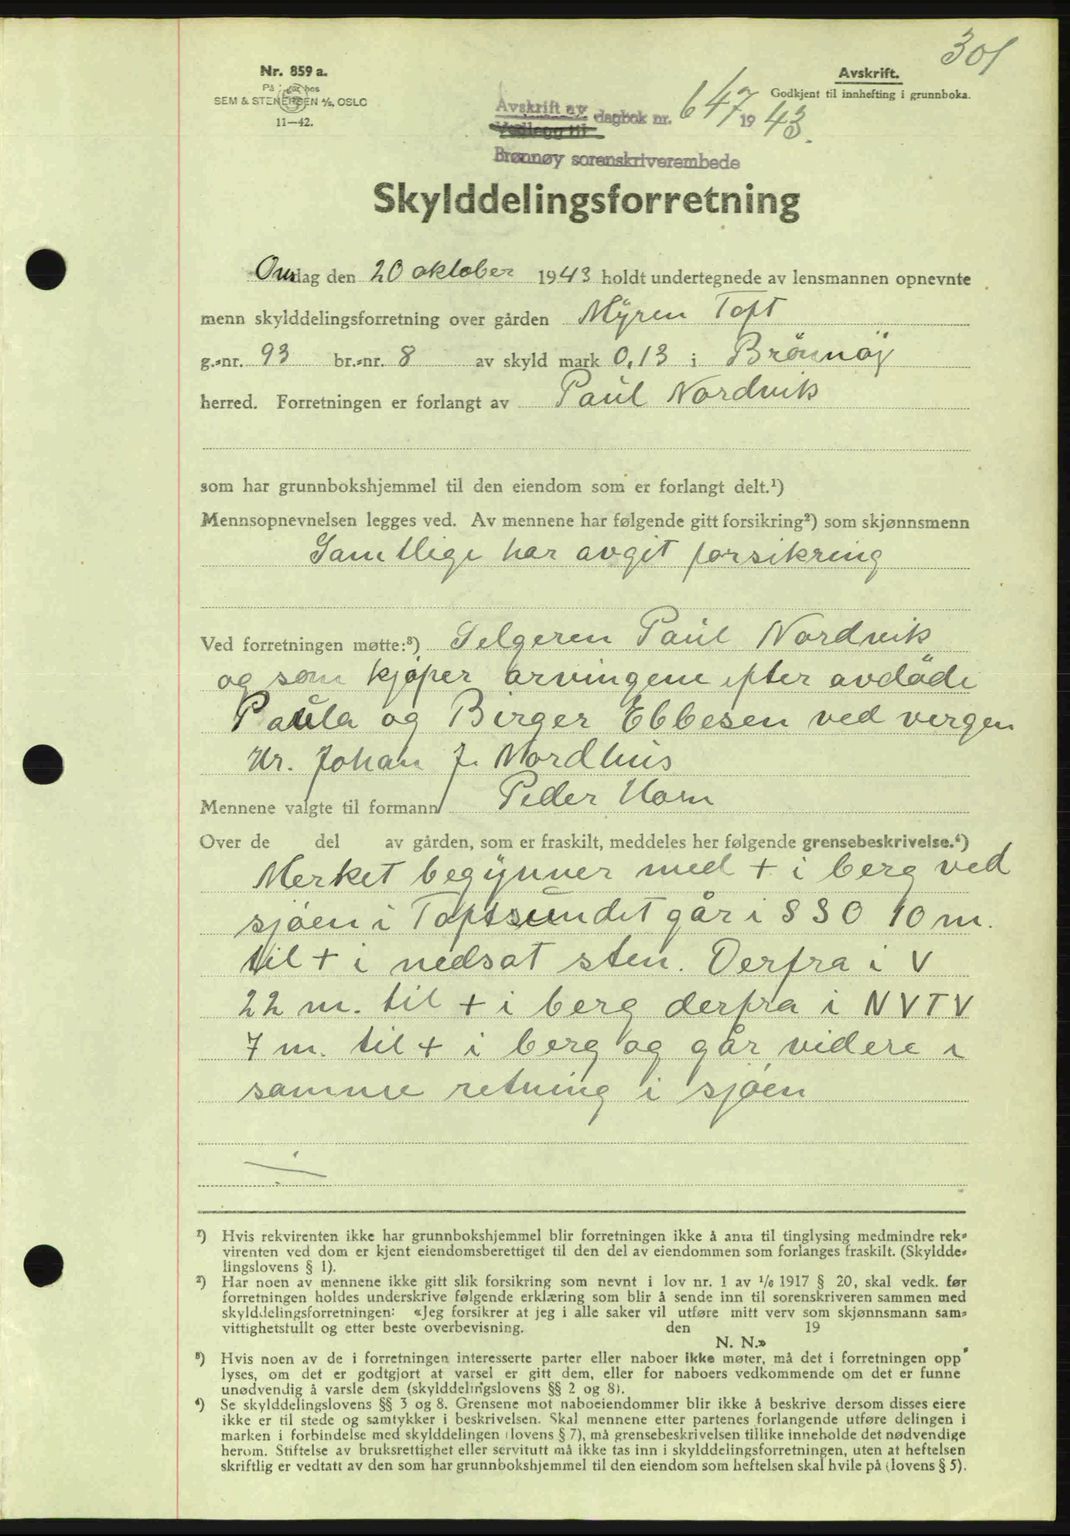 301
Nr. 859 a.
På lager hos
SEM & STENERSEN A/S, OSLO
11—42.
Avskrift.
Godkjent til innhefting i grunnboka.
Avskrift av
Vedlegg til
dagbok nr. 647 1943.
Brønnøy sorenskriverembede
Skylddelingsforretning
Onsdag den 20 oktober 1943 holdt undertegnede av lensmannen opnevnte
menn skylddelingsforretning over gården Myren Toft
g.-nr. 93 br.-nr. 8 av skyld mark 0,13 i Brönnöy
herred. Forretningen er forlangt av Paul Nordvik
som har grunnbokshjemmel til den eiendom som er forlangt delt.¹)
Mennsopnevnelsen legges ved. Av mennene har følgende gitt forsikring²) som skjønnsmenn
Samtlige har avgit forsikring
Ved forretningen møtte:³) Selgeren Paul Nordvik
og som kjøper arvingene efter avdöde
Paula og Birger Ebbesen ved vergen
Hr. Johan J. Nordhus
Mennene valgte til formann Peder Horn
Over de del av gården, som er fraskilt, meddeles her følgende grensebeskrivelse.⁴)
Merket begynner med + i berg ved
sjöen i Toftsundet går i SSO 10 m.
til + i nedsat sten. Derfra i V
22 m. til + i berg derfra i NVTV
7 m. til + i berg og går videre i
samme retning i sjöen
¹) Hvis rekvirenten ikke har grunnbokshjemmel blir forretningen ikke å anta til tinglysing medmindre rek-
virenten ved dom er kjent eiendomsberettiget til den del av eiendommen som forlanges fraskilt. (Skyldde-
lingslovens § 1).
²) Har noen av mennene ikke gitt slik forsikring som nevnt i lov nr. 1 av 1/6 1917 § 20, skal vedk. før
forretningen holdes underskrive følgende erklæring som blir å sende inn til sorenskriveren sammen med
skylddelingsforretningen: «Jeg forsikrer at jeg i alle saker vil utføre mitt verv som skjønnsmann sam-
vittighetsfullt og etter beste overbevisning. den 19
N. N.»
³) Hvis noen av de i forretningen interesserte parter eller naboer ikke møter, må det i forretningen opp
lyses, om det er godtgjort at varsel er gitt dem, eller for naboers vedkommende om det er funne
unødvendig å varsle dem (skylddelingslovens §§ 2 og 8).
⁴) Se skylddelingslovens §§ 3 og 8. Grensene mot naboeiendommer blir ikke å beskrive dersom disses eiere
ikke er til stede og samtykker i beskrivelsen. Skal mennene etter partenes forlangende utføre delingen i
marken i forbindelse med skylddelingen (lovens § 7), må grensebeskrivelsen tillike inneholde det nødvendige
herom. Stiftelse av bruksrettighet eller servitutt må ikke tas inn i skylddelingsforretningen, uten at heftelsen
skriftlig er vedtatt av den som har grunnbokshjemmel til den eiendom som heftelsen skal hvile på (lovens § 5).